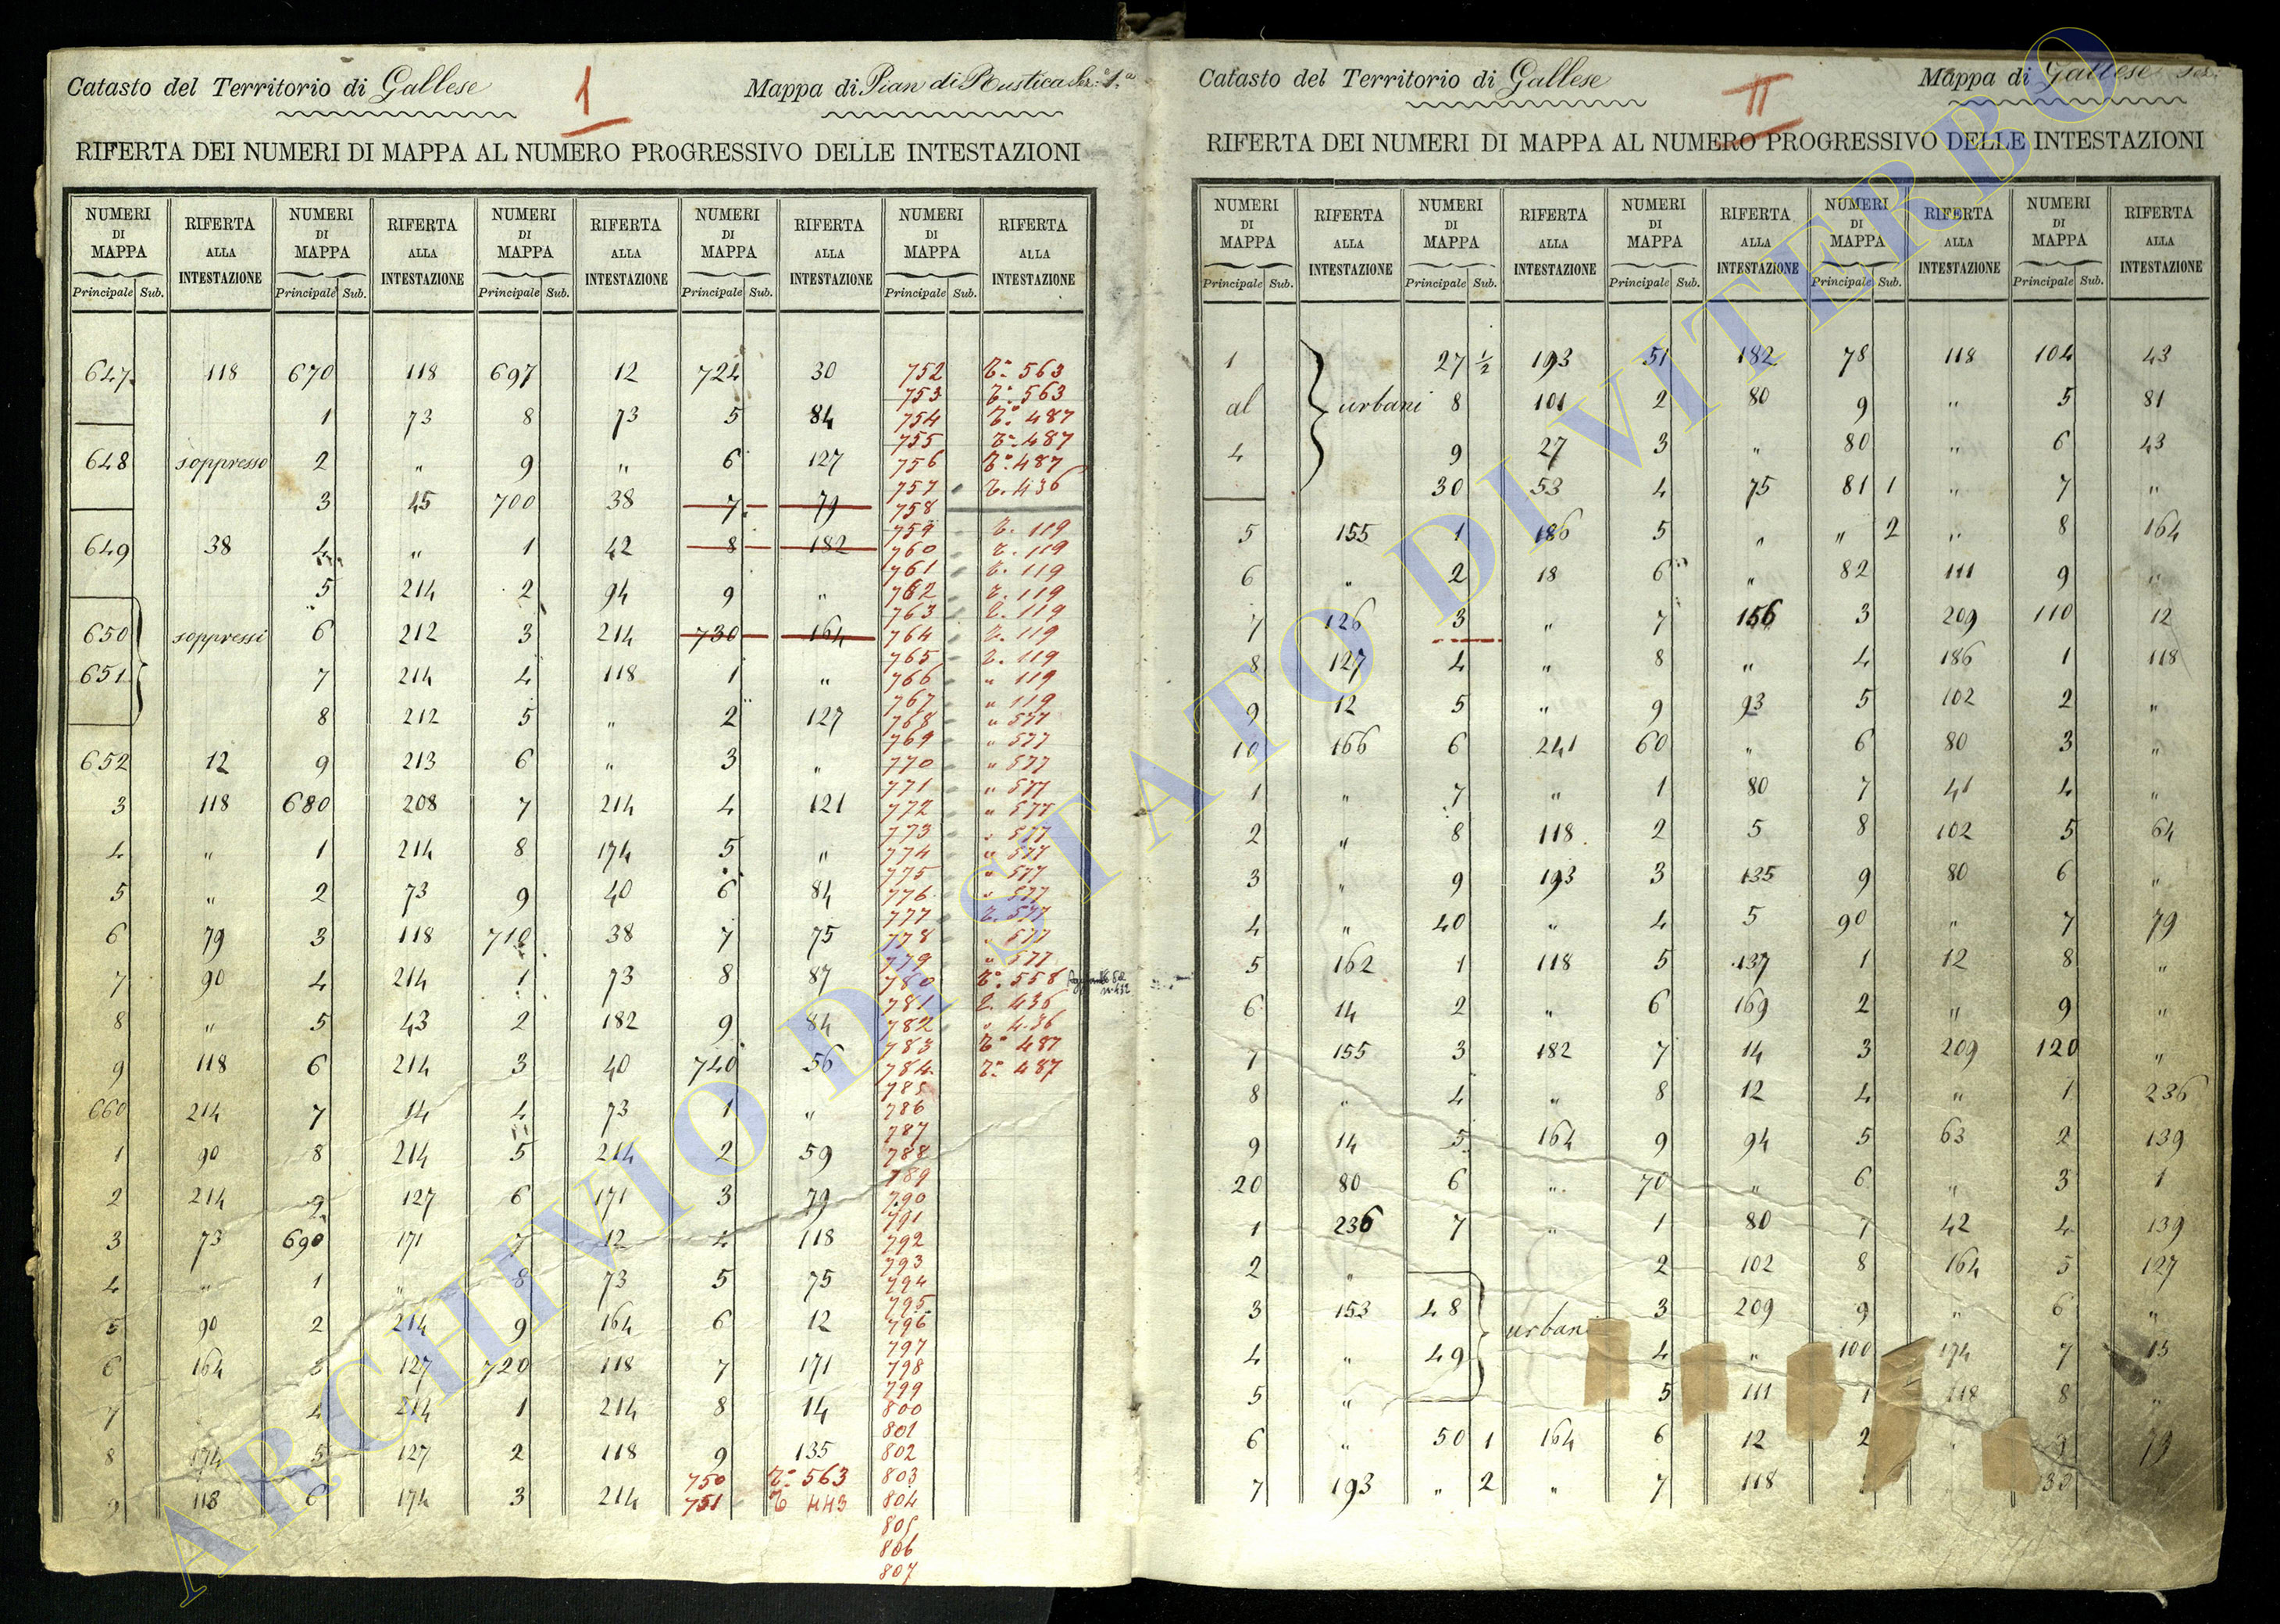 Catasto del Territorio di Gallese
1
Mappa di Pian di Rustica Sez. 1.a
RIFERTA DEI NUMERI DI MAPPA AL NUMERO PROGRESSIVO DELLE INTESTAZIONI
NUMERI DI MAPPA RIFERTA ALLA INTESTAZIONE NUMERI DI MAPPA RIFERTA ALLA INTESTAZIONE NUMERI DI MAPPA RIFERTA ALLA INTESTAZIONE NUMERI DI MAPPA RIFERTA ALLA INTESTAZIONE NUMERI DI MAPPA RIFERTA ALLA INTESTAZIONE
Principale Sub. Principale Sub. Principale Sub. Principale Sub. Principale Sub.
647 118
648 soppresso
649 38
650 soppressi
651
652 12
3 118
4 "
5 "
6 79
7 90
8 "
9 118
660 214
1 90
2 214
3 73
4 "
5 90
6 164
7
8 174
9 118
670 118
1 73
2 "
3 45
4 "
5 214
6 212
7 214
8 212
9 213
680 208
1 214
2 73
3 118
4 214
5 43
6 214
7 14
8 214
9 127
690 171
1 "
2 214
3 127
4 214
5 127
6 174
697 12
8 73
9 "
700 38
1 42
2 94
3 214
4 118
5 "
6 "
7 214
8 174
9 40
710 38
1 73
2 182
3 40
4 73
5 214
6 171
7 12
8 73
9 164
720 118
1 214
2 118
3 214
724 30
5 84
6 127
7 79
8 182
9 "
730 164
1 "
2 127
3 "
4 121
5 "
6 84
7 75
8 87
9 84
740 56
1 "
2 59
3 79
4 118
5 75
6 12
7 171
8 14
9 135
750 563
751 443
752 563
753 563
754 487
755 487
756 487
757 436
758
759 119
760 119
761 119
762 119
763 119
764 119
765 119
766 " 119
767 " 119
768 " 577
769 " 577
770 " 577
771 " 577
772 " 577
773 " 577
774 " 577
775 " 577
776 " 577
777 577
778 " 577
779 " 577
780 558
781 436
782 " 436
783 487
784 487
785
786
787
788
789
790
791
792
793
794
795
796
797
798
799
800
801
802
803
804
805
806
807
Catasto del Territorio di Gallese
II
Mappa di Gallese Sez.
RIFERTA DEI NUMERI DI MAPPA AL NUMERO PROGRESSIVO DELLE INTESTAZIONI
NUMERI DI MAPPA RIFERTA ALLA INTESTAZIONE NUMERI DI MAPPA RIFERTA ALLA INTESTAZIONE NUMERI DI MAPPA RIFERTA ALLA INTESTAZIONE NUMERI DI MAPPA RIFERTA ALLA INTESTAZIONE NUMERI DI MAPPA RIFERTA ALLA INTESTAZIONE
Principale Sub. Principale Sub. Principale Sub. Principale Sub. Principale Sub.
1
al urbani
4
5 155
6 "
7 126
8 127
9 12
10 166
1 "
2 "
3 "
4 "
5 162
6 14
7 155
8 "
9 14
20 80
1 236
2 "
3 153
4 "
5 "
6 "
7 193
27 1/2 193
8 101
9 27
30 53
1 186
2 18
3 "
4 "
5 "
6 241
7 "
8 118
9 193
40 "
1 118
2 "
3 182
4 "
5 164
6 "
7 "
48 urbani
49
50 1 164
" 2 "
51 182
2 80
3 "
4 75
5 "
6 "
7 156
8 "
9 93
60 "
1 80
2 5
3 135
4 5
5 137
6 169
7 14
8 12
9 94
70 "
1 80
2 102
3 209
4 "
5 111
6 12
7 118
78 118
9 "
80 "
81 1 "
" 2 "
82 111
3 209
4 186
5 102
6 80
7 41
8 102
9 80
90 "
1 12
2 "
3 209
4 "
5 63
6 "
7 42
8 164
9 "
100 174
1 118
2
104 43
5 81
6 43
7 "
8 164
9 "
110 12
1 118
2 "
3 "
4 "
5 64
6 "
7 79
8 "
9 "
120 "
1 236
2 139
3 1
4 139
5 127
6 "
7 15
8 "
79
ARCHIVIO DI STATO DI VITERBO